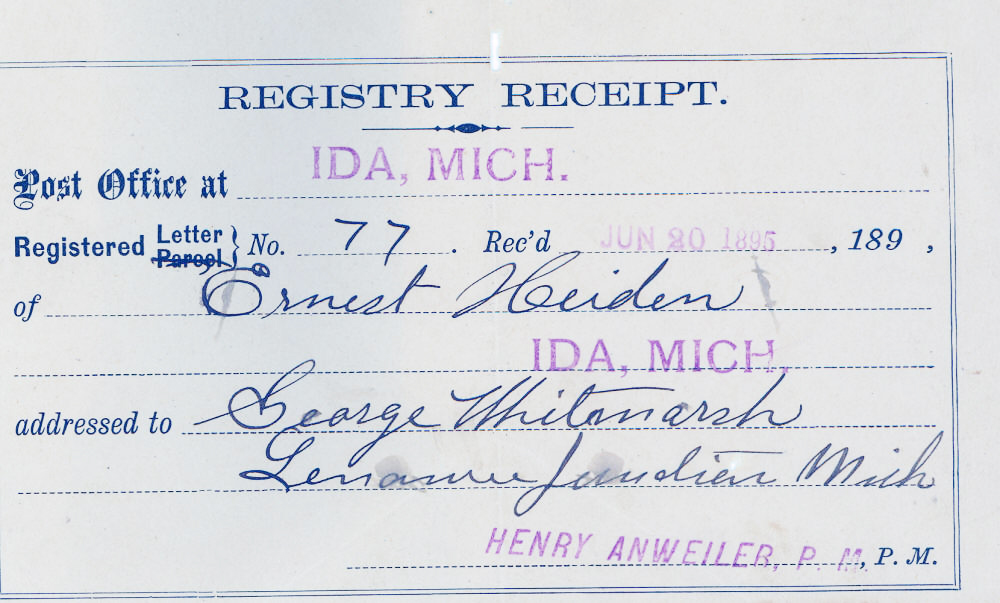 REGISTRY RECEIPT.
Post Office at IDA, MICH.
Registered Letter Parcel } No. 77. Rec'd JUN 20 1895, 189 ,
of Ernest Heiden
IDA, MICH.
addressed to George Whitmarsh
Lenawee Mich
HENRY ANWEILER, P. M., P. M.